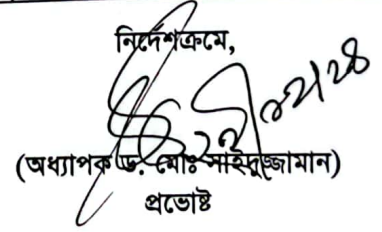 নির্দেশক্রমে,
(অধ্যাপক ড. মোঃ সাইদুজ্জামান)
প্রভোষ্ট